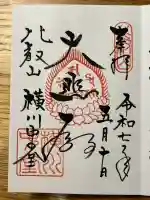 奉拝
令和七年
五月十日
大悲殿
比叡山
横川中堂